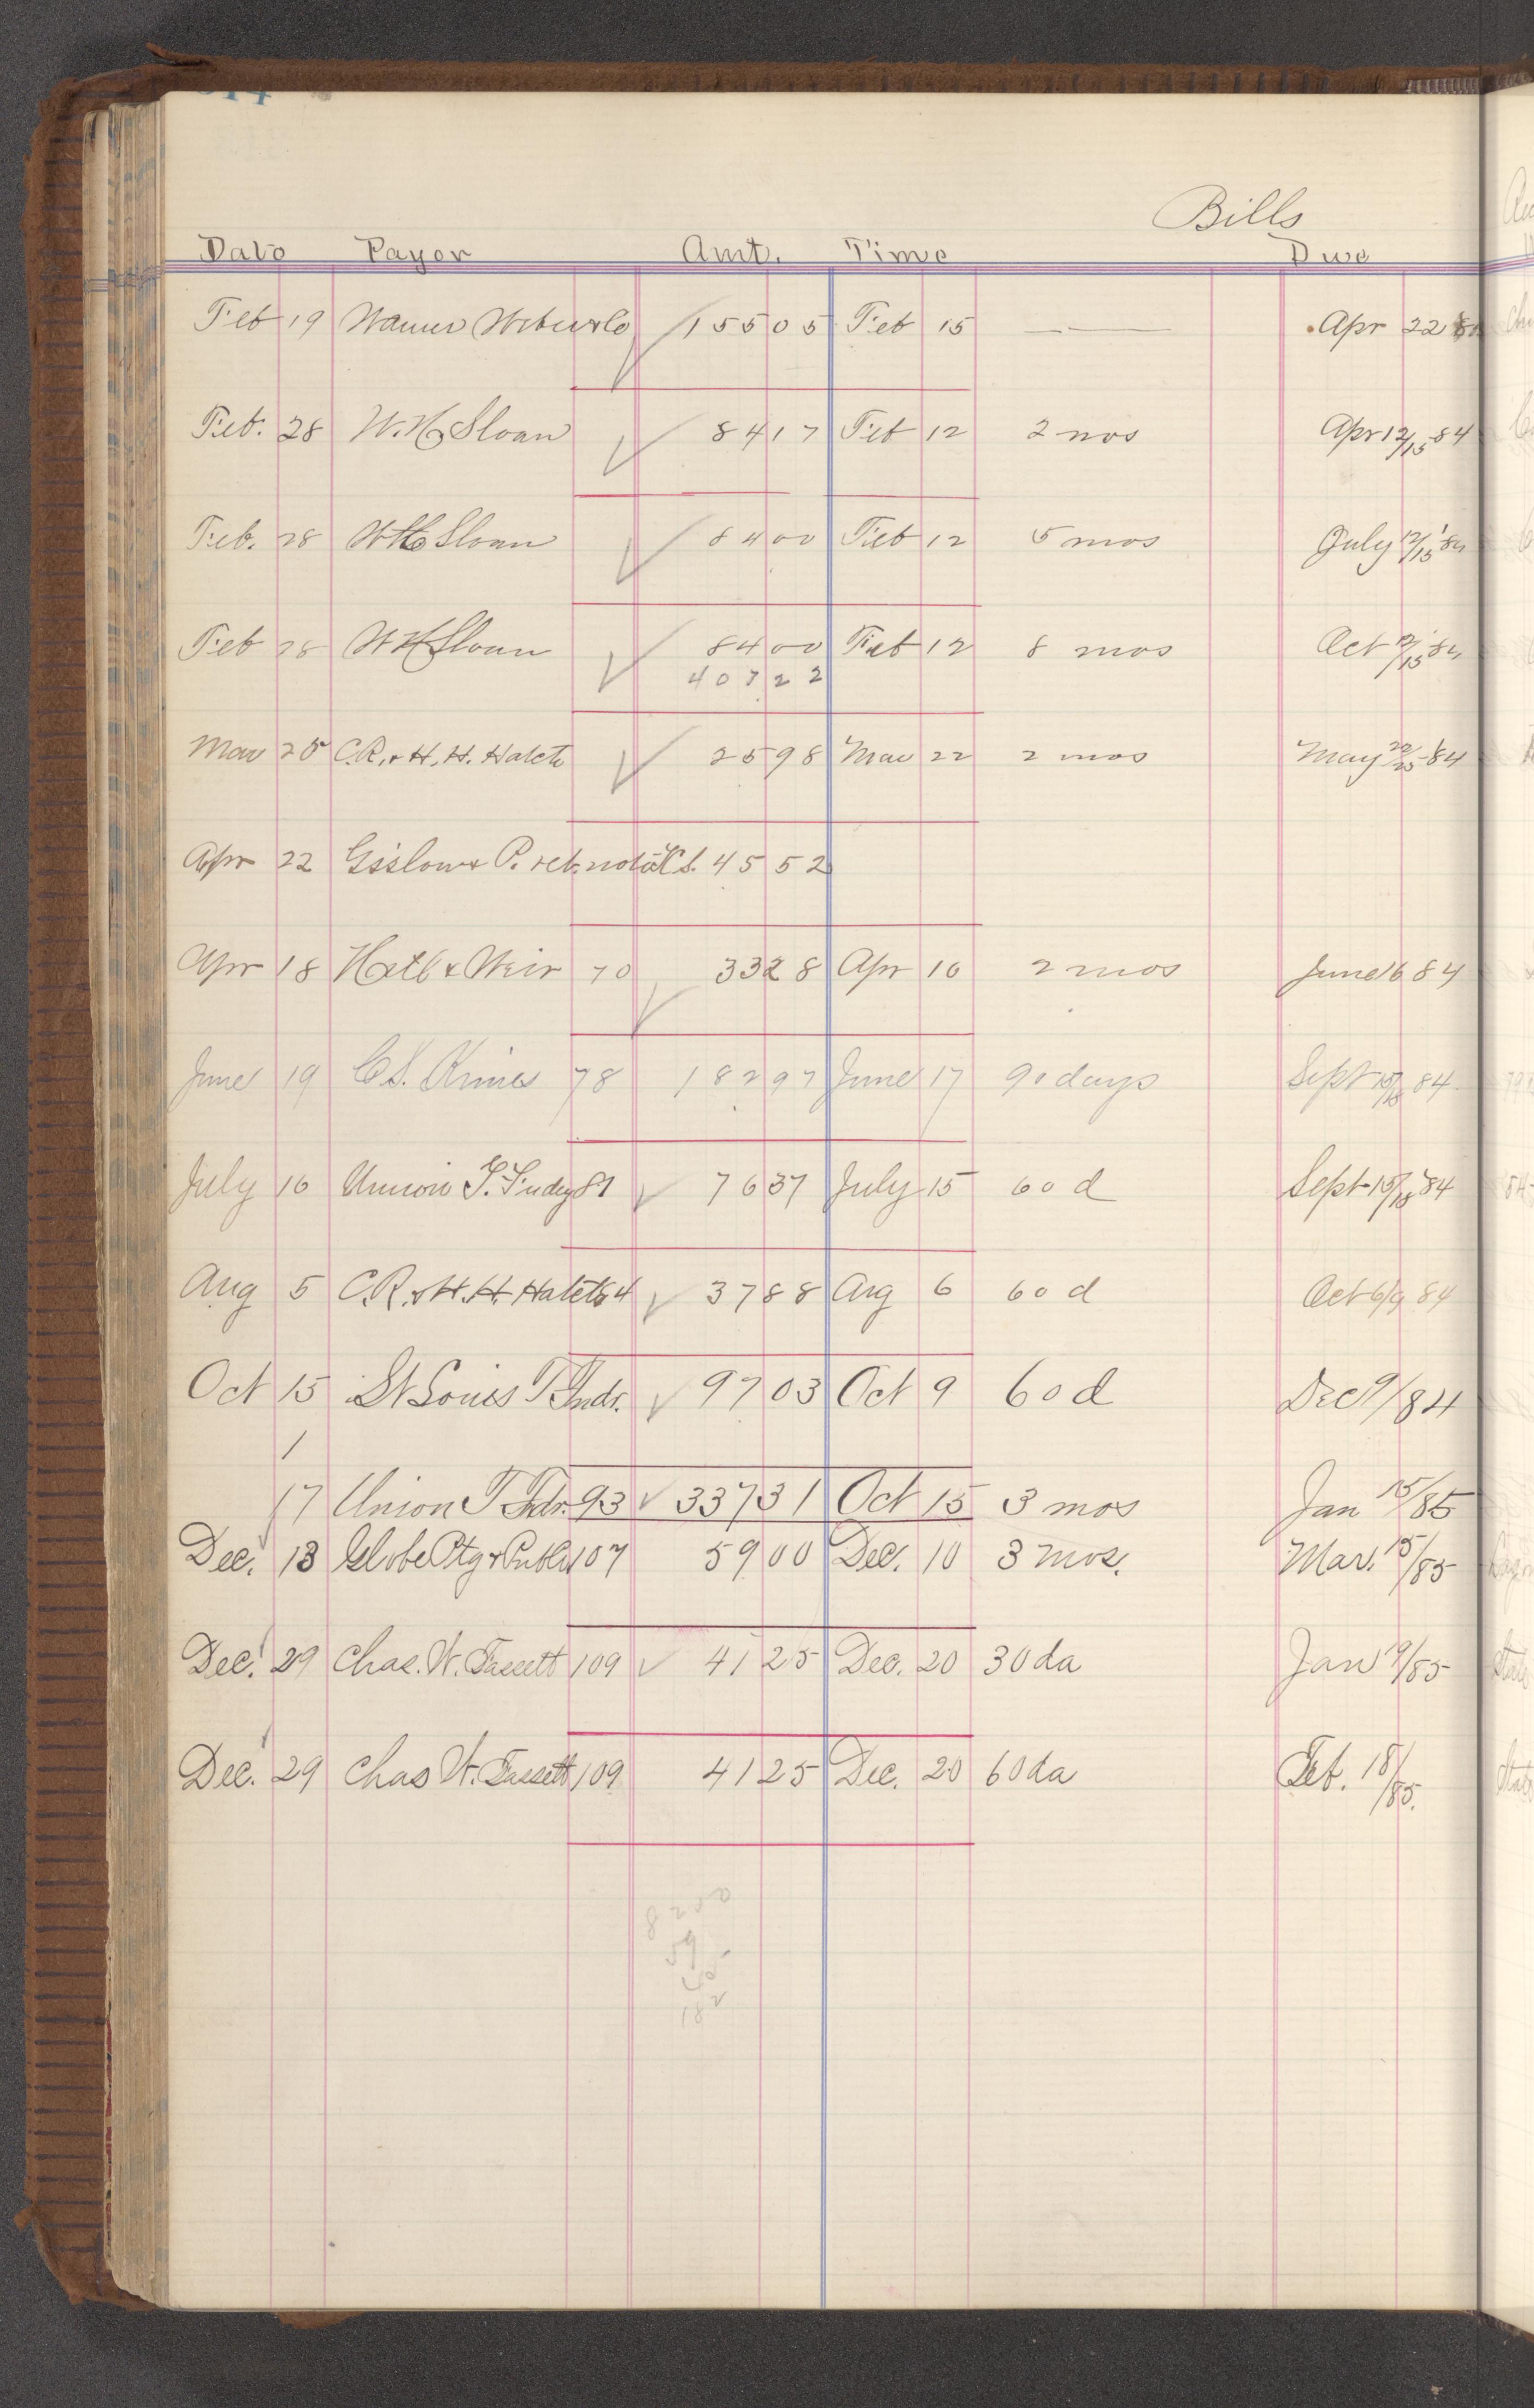 Bills
Date Payor Amt. Time Due
Feb 19 155 05 Feb 15 — Apr 22
Feb. 28 W. H. Sloan ✓ 84 17 Feb 12 2 mos Apr 12/15 84
Feb. 28 W H Sloan ✓ 84 00 Feb 12 5 mos July 12/15 '84
Feb 28 W H Sloan ✓ 84 00 Feb 12 8 mos Oct 12/15 '84
407 22
Mar 25 C. R. & H. H. Hatch ✓ 25 98 Mar 22 2 mos May 22/25 '84
Apr 22 45 52
Apr 18 & Weir 70 ✓ 33 28 Apr 16 2 mos June 16 84
June 19 C S. 78 182 97 June 17 90 days Sept 15/18 84
July 16 Union 81 ✓ 76 37 July 15 60 d Sept 15/18 '84
Aug 5 C. R. & H. H. Hatch 84 ✓ 37 88 Aug 6 60 d Oct 6/9 84
Oct 15 St Louis T. Fndr. ✓ 97 03 Oct 9 60 d Dec 9/84
17 Union T. Fdr. 93 ✓ 337 31 Oct 15 3 mos Jan 15/85
Dec. 13 Globe Ptg & 107 59 00 Dec. 10 3 mos. Mar. 15/85
Dec. 29 Chas. W. Fassett 109 ✓ 41 25 Dec. 20 30 da Jan 19/85
Dec. 29 Chas W. Fassett 109 41 25 Dec. 20 60 da Feb. 18/85.
82 50
59
182